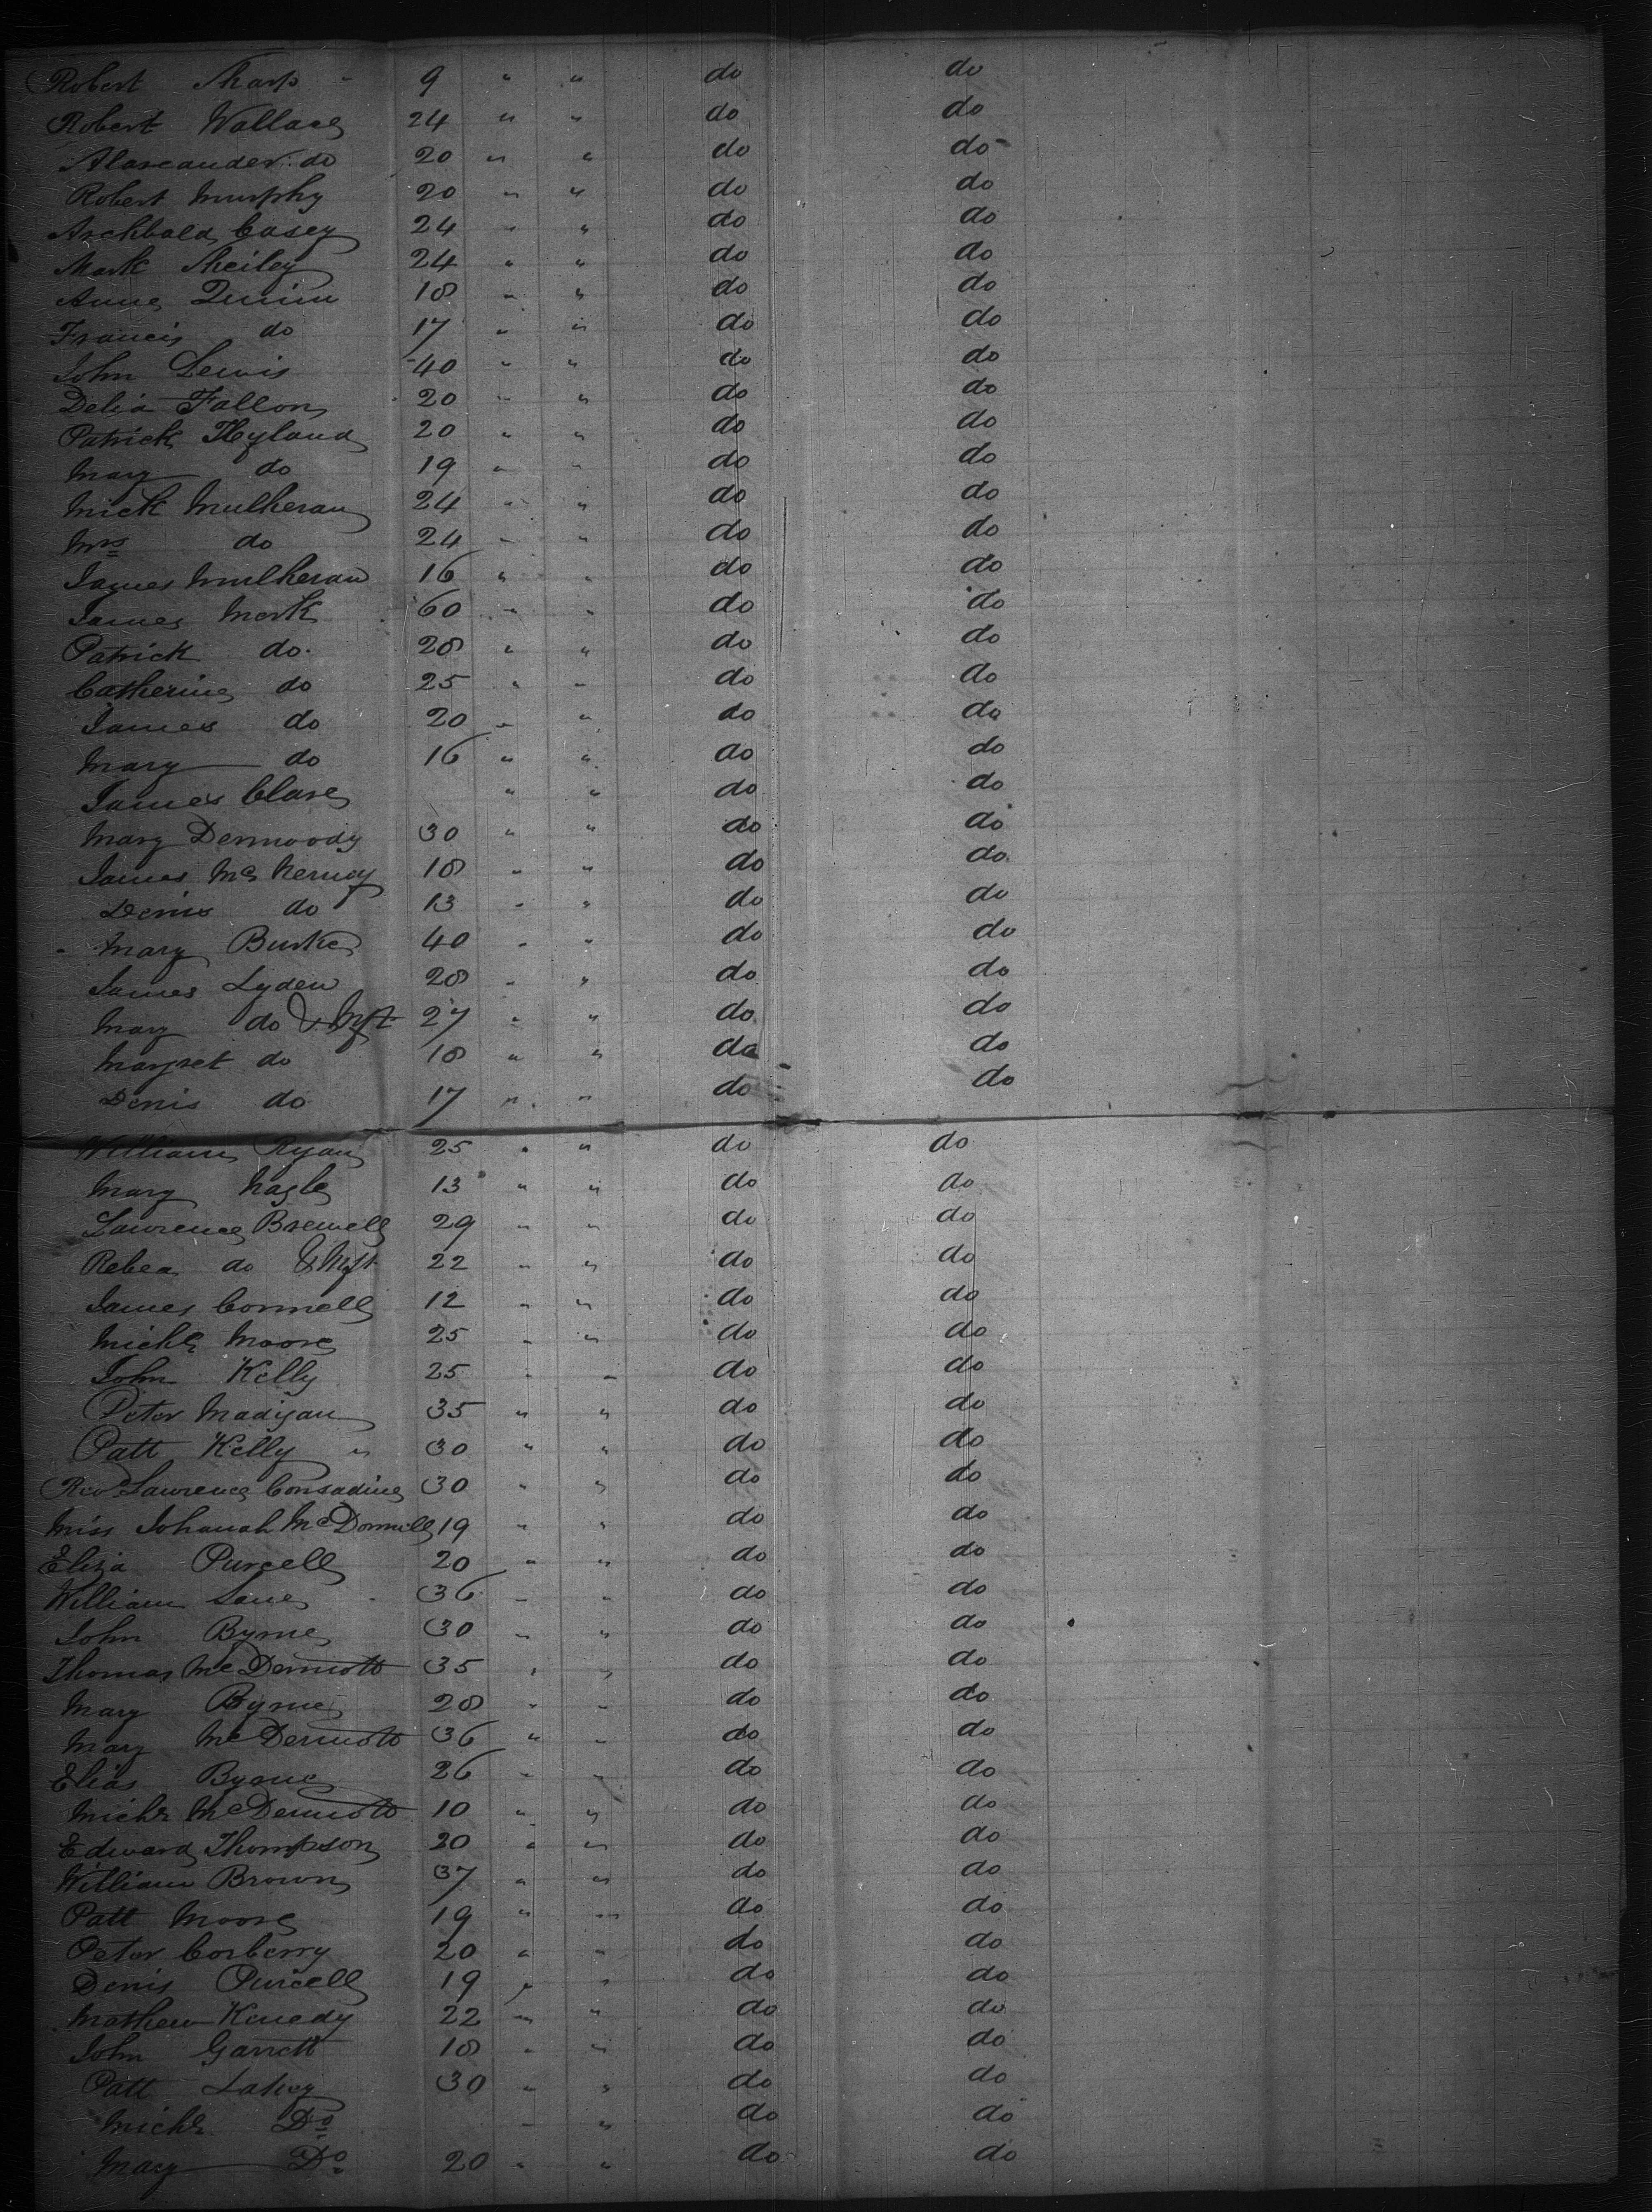 Robert Sharp - 9 " " do do
Robert Wallace 24 " " do do
Alaxeander do 20 " " do do
Robert Murphy 20 " " do do
Archbald Casey 24 " " do do
Mark Sheiley 24 " " do do
Anne Quinn 18 " " do do
Francis do 17 " " do do
John Lewis 40 " " do do
Delia Fallon 20 " " do do
Patrick Hyland 20 " " do do
Mary do 19 " " do do
Mick Mulheran 24 " " do do
Mrs do 24 " " do do
James Mulheran 16 " " do do
James Merk 60 " " do do
Patrick do 28 " " do do
Catherine do 25 " " do do
James do 20 " " do do
Mary do 16 " " do do
James Clare " " do do
Mary Dermoody 30 " " do do
James Mc Nernoy 18 " " do do
Denis do 13 " " do do
Mary Burke 40 " " do do
James Lyden 28 " " do do
Mary do & Inft 27 " " do do
Margret do 18 " " do do
Denis do 17 " " do do
William Ryan 25 " " do do
Mary Nagle 13 " " do do
Lawrence Brewell 29 " " do do
Rebea do & Inft 22 " " do do
James Connell 12 " " do do
Michl Moore 25 " " do do
John Kelly 25 " " do do
Peter Madigan 35 " " do do
Patt Kelly " 30 " " do do
Rev Lawrence Consadine 30 " " do do
Miss Johanah McDonnell 19 " " do do
Eliza Purcell 20 " " do do
William Lane 36 " " do do
John Byrne 30 " " do do
Thomas McDermott 35 " " do do
Mary Byrne 28 " " do do
Mary McDermott 36 " " do do
Elias Byrne 26 " " do do
Michl McDermott 10 " " do do
Edward Thompson 20 " " do do
William Brown 37 " " do do
Patt Moore 19 " " do do
Peter Corberry 20 " " do do
Denis Purcell 19 " " do do
Mathew Kenedy 22 " " do do
John Garrett 18 " " do do
Patt Lahey 30 " " do do
Michl Do " " do do
Mary Do 20 " " do do